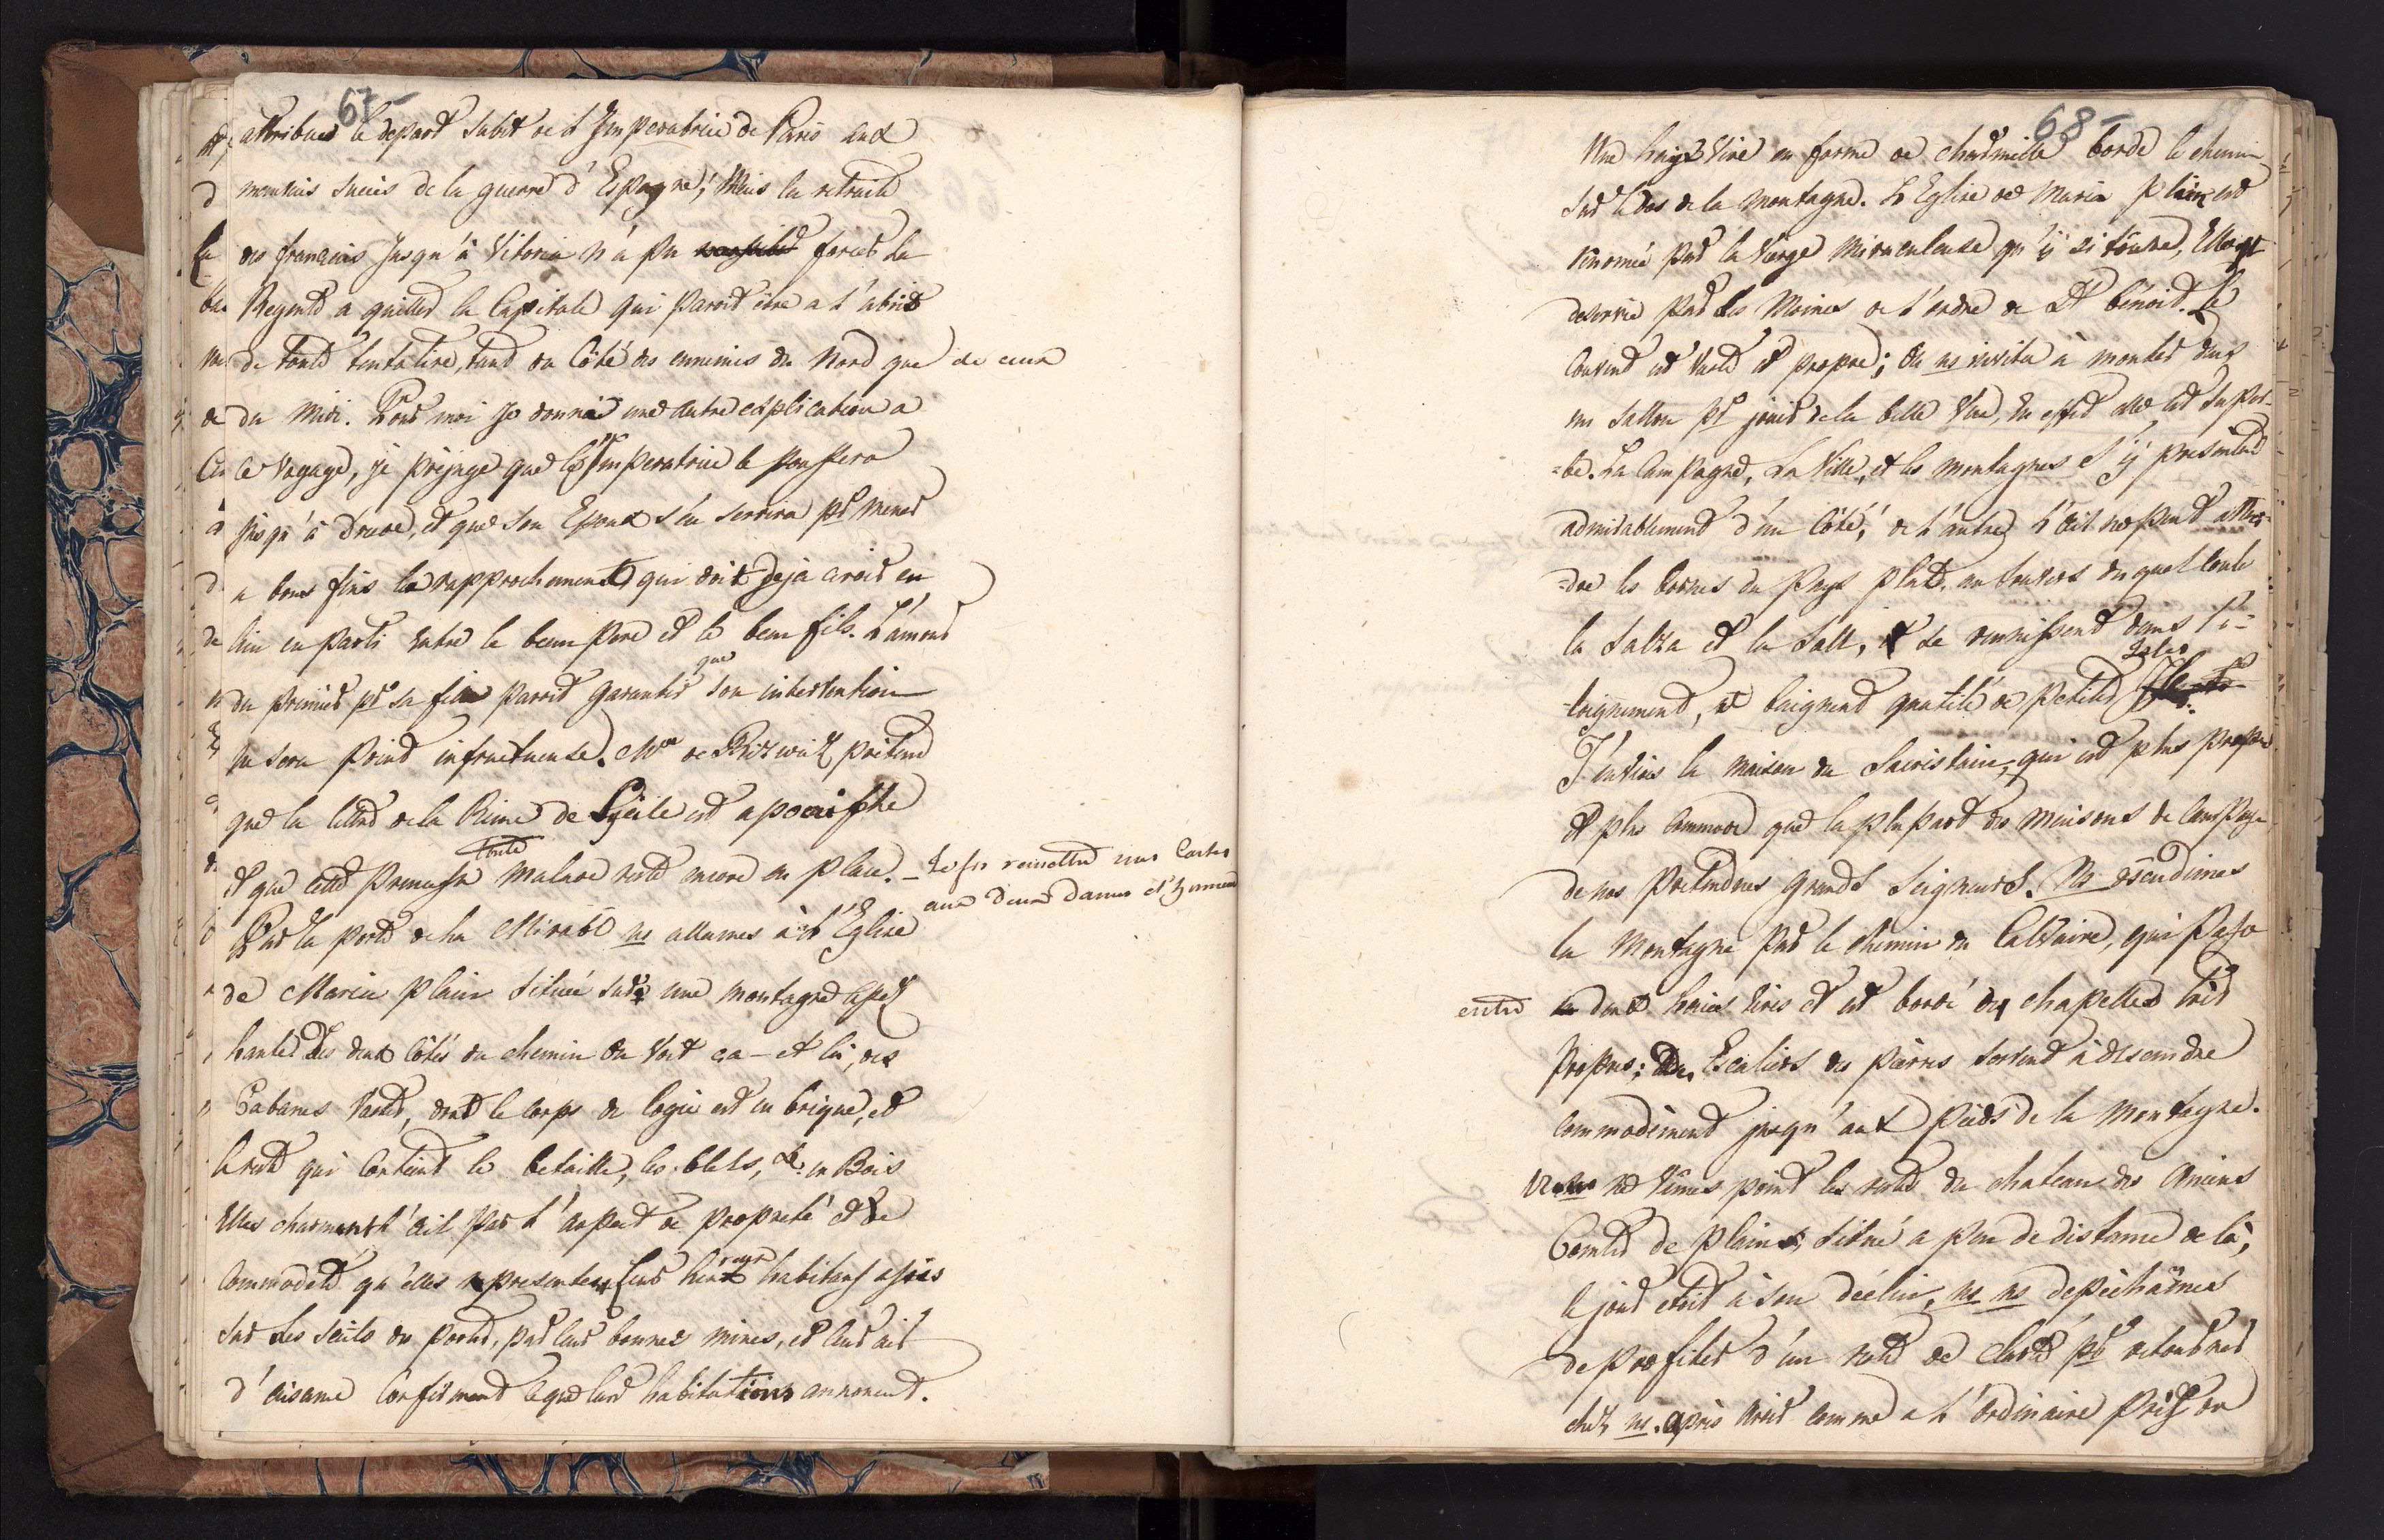 67-
attribuer le depart subit de l'Imperatrice de Paris aux
mauvais succès de la guerre d'Espagne; Mais la retraite
des français jusqu'à Vitoria n'a pu forcer la
Regente a quitter la Capitale qui paroit être a l'abris
de toute tentative, tant du Côté des ennemis du Nord que de ceux
du Midi. Pour moi je donne une autre explication a
ce voyage, je préjuge que l'Imperatrice le poussera
jusqu'à Dresde, et que son Epoux s'en servira pr mener
a bons fins le rapprochement qui doit deja avoir eu
lieu en parti entre le beau pere et le beau fils. L'amour
du premier pr sa fille paroit garantir que son intervention
ne sera point infructueuse. Mr de prétend
que la lettre de la Reine de Sicile est apocrifhe
et que cette Princesse toute Malade reste encore en place. - Je fis remettre mes Cartes
aux deux dames
Par la porte de la Mirabé ns allames à l'Eglise
de Maria Plain située sur une montagne assez
haute. Des deux Côtés du chemin on voit ça - et là, des
Cabanes vastes, dont le corps de logis est en brique, et
le reste qui contient le betaille, les bleds, &c. en Bois
Elles charment l'œil par l'aspect de propreté et de
Commodité qu'elles presentent. Leurs heureux habitans assis
sur les seuils des portes, par leurs bonnes mines, et leur air
d'aisance confirment ce que leurs habitations annoncent.
68-
Une haye vive en forme de charmille borde le chemin
sur le dos de la montagne. L'Eglise de Maria plain est
renomée par la Vierge Miraculeuse qu'y si trouve, Elle est
deservie par les Moines de l'ordre de St benoit. Le
Couvent est vaste et propre; On ns invita à monter dans
un sallon pr jouir de la belle vue, En effet elle est super-
=be. La Campagne, La Ville, et les montagnes s'y presentent
admirablement d'un Côté; de l'autre L'œil ne peut attein-
=dre les bornes du Pays plat, au travers du quel coule
la Salza et la Sall, se reunissent dans l'é-
-loignement, et baignent quatité de petites Isles.
J'enviai la maison du Sacristain, qui est plus propre
et plus Commode que la plupart des maisons de Campagne
de nos pretendues grands Seigneurs. Ns déscendimes
la Montagne par le chemin du Calvaire, qui passe
entre deux haies vives et est bordé de chapelles très
propres; Des Escaliers de pierres servent à descendre
Commodément jusqu'aux pieds de la Montagne.
ne vimes point les restes du chateau des Anciens
Comtes de Plain, situé a peu de distance de là;
le jour etoit à son déclin, ns ns depéchames
de profiter d'un reste de clarté pr retourner
chez ns. après avoir comme a l'ordinaire pris du